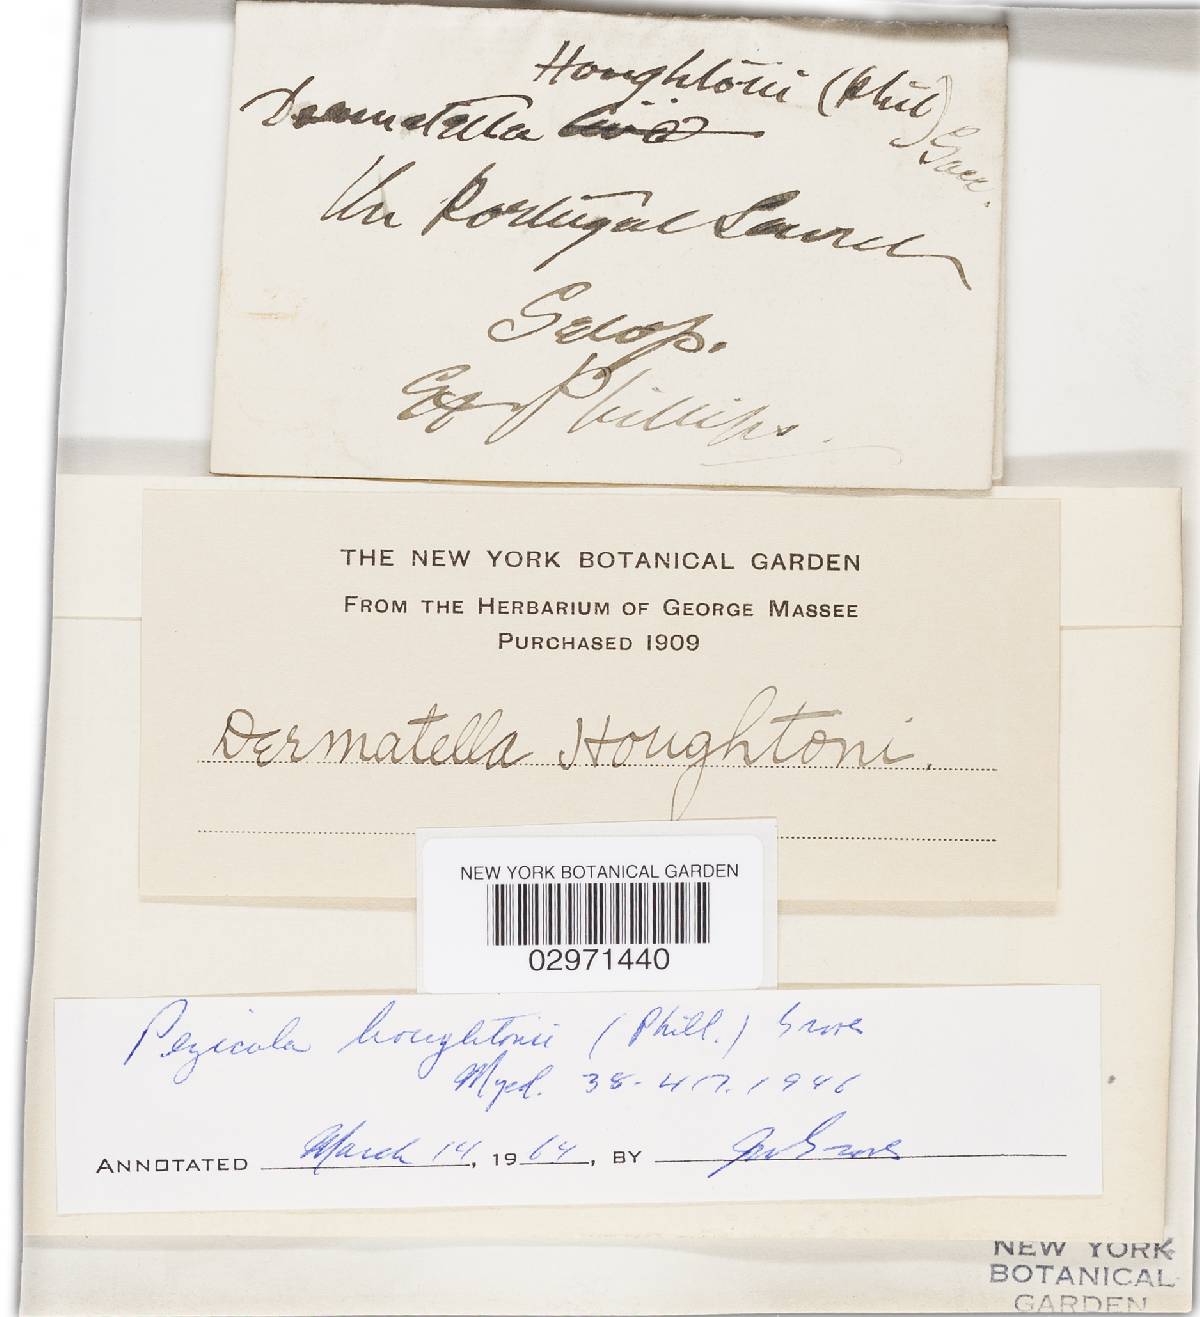 Houghtonii (Phil)
Sacc.
Dermatella
On Portugal Laurel
Salop.
Phillips.
THE NEW YORK BOTANICAL GARDEN
FROM THE HERBARIUM OF GEORGE MASSEE
PURCHASED 1909
Dermatella Houghtoni.
NEW YORK BOTANICAL GARDEN
02971440
Pezicula houghtonii (Phill.) Groves
Mycol. 38-417. 1946
ANNOTATED March 14, 1964, BY JW Groves
NEW YORK
BOTANICAL
GARDEN